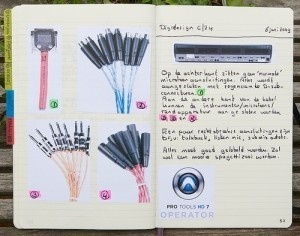 Digidesign C|24
6 juni 2009
Op de winterhunt zitten geen "normale"
microfoon aansluitingen. Alles wordt
aangesloten met zogenaamde D-sub-
connectoren. ①
Aan de andere kant van de kabel
kunnen de instrumenten/microfoons/
randapparatuur aan ge sloten worden
②, ③ en ④
Een paar rechtstreekse aansluitingen zijn
o.a. talkback, listen mic,
Alles moet goed gelabeld worden. Zal
wel een mooie spaghetti zooi worden.
①
②
③
④
PRO TOOLS HD 7
OPERATOR